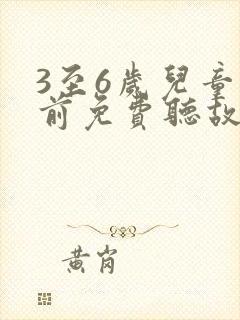 3至6歲兒童
前免費聽故
黃岗